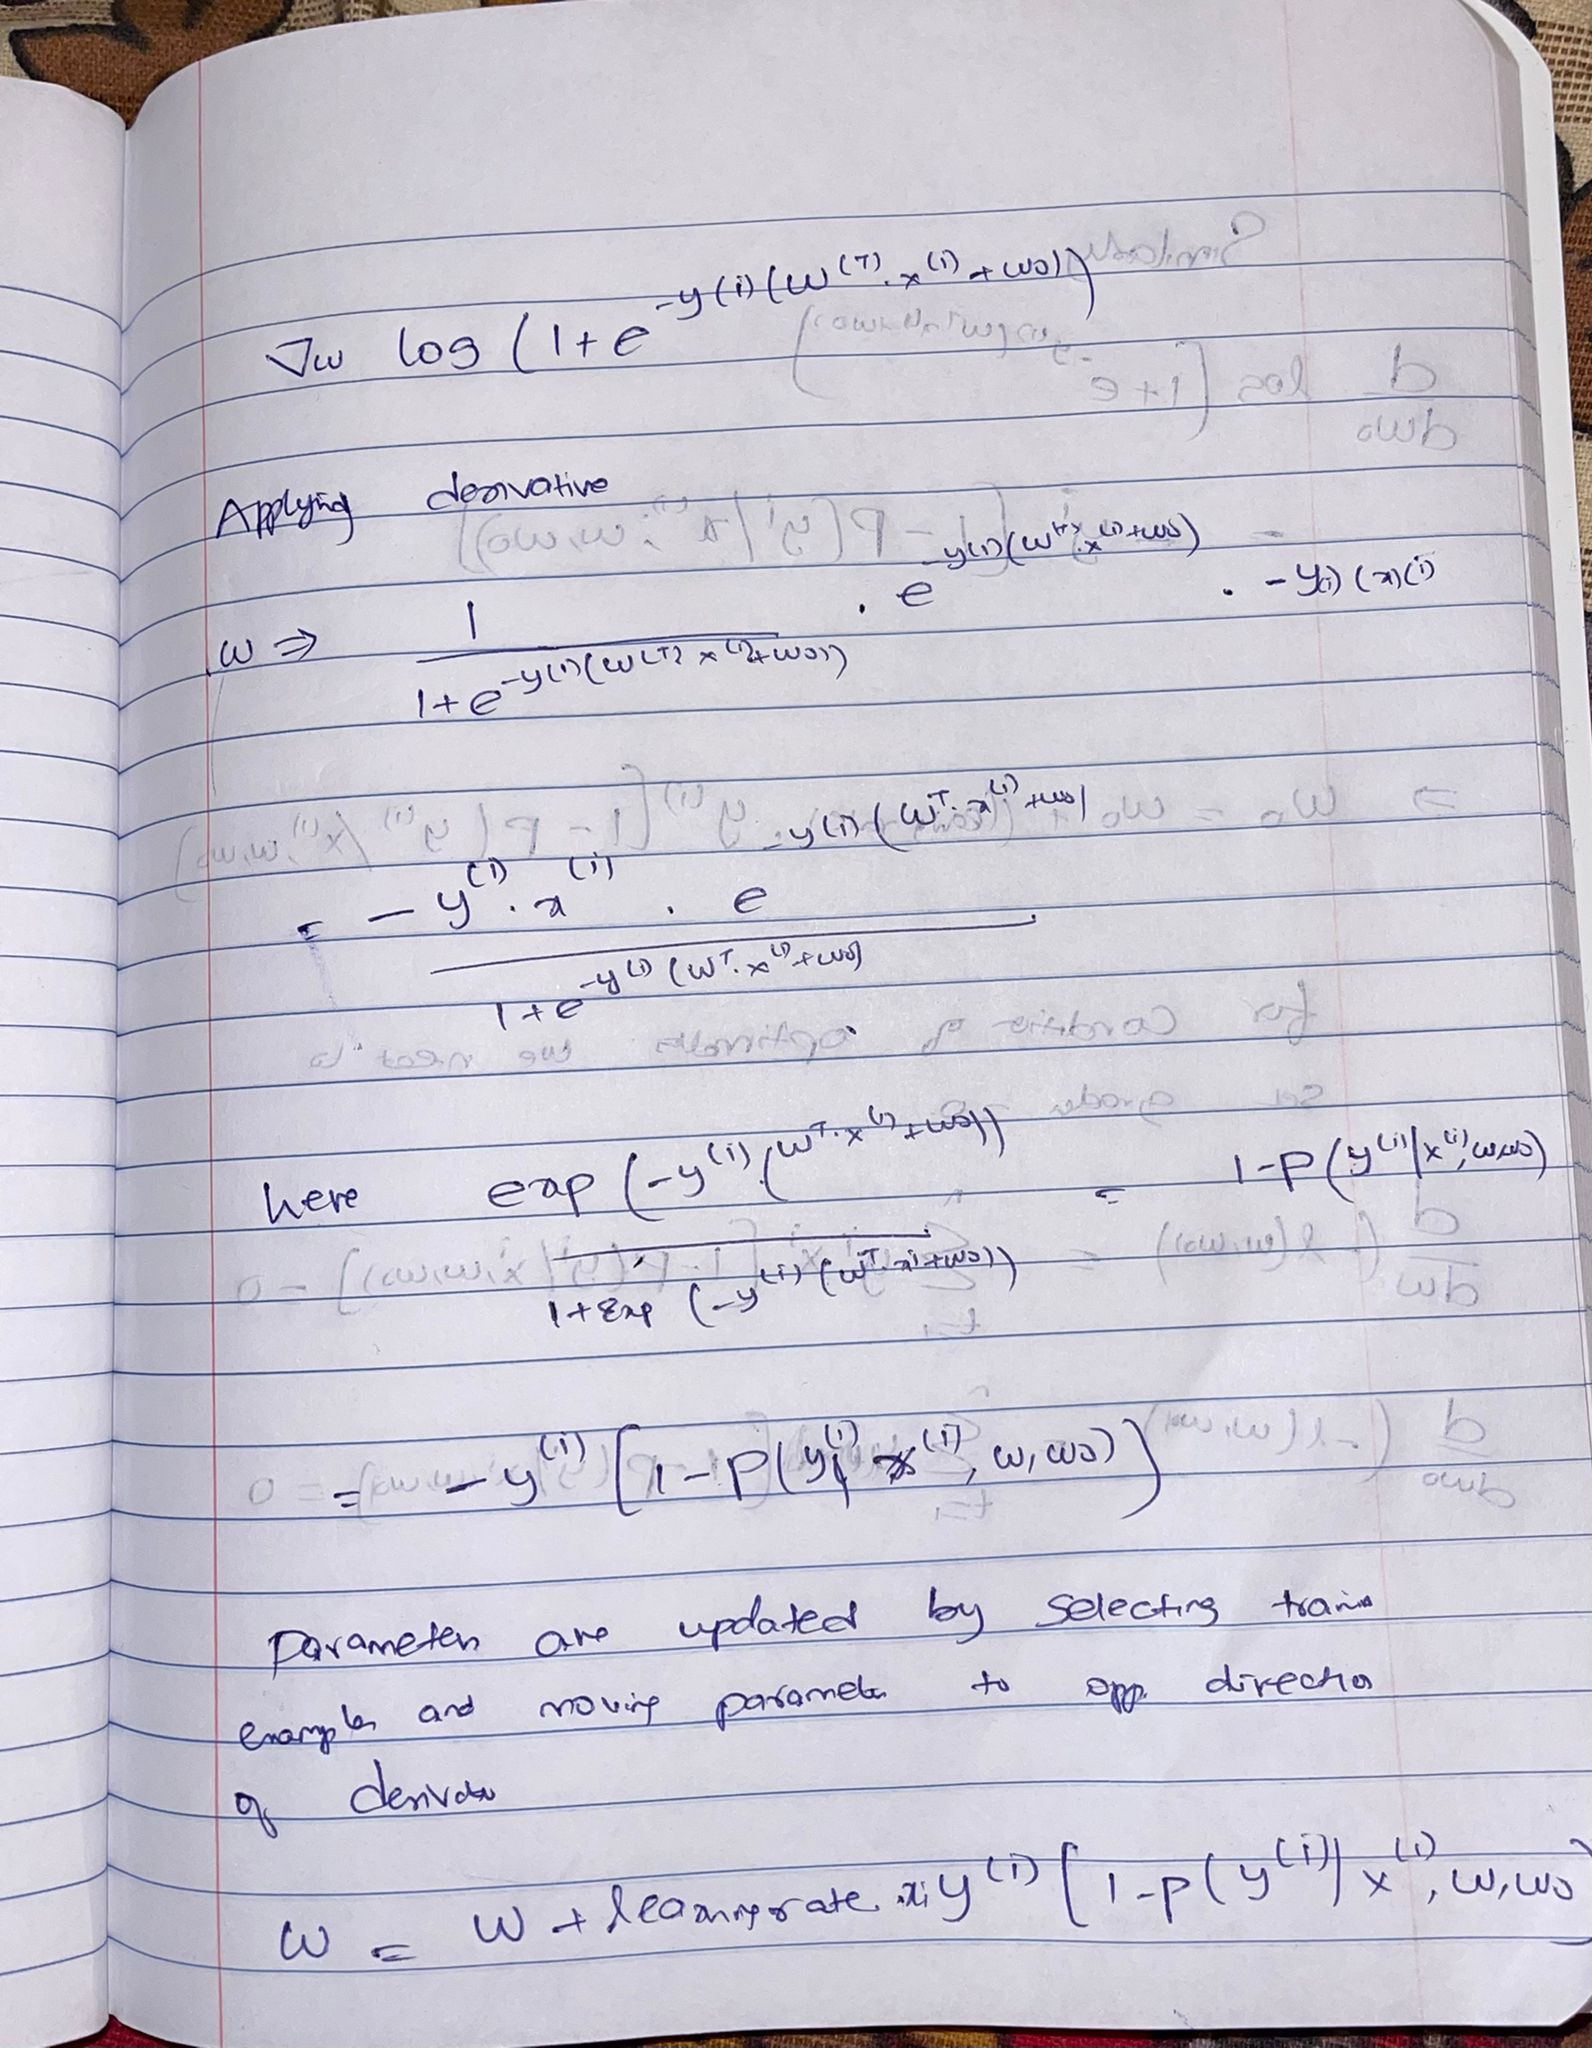 ∇w log (1+e^{-y(i)(w^{(T)}.x^{(i)}+w0)})
Applying derivative
w ⇒ 1/(1+e^{-y(i)(w(T) x(i)+w0))}) . e^{-y(i)(w^{T}.x^{(i)}+w0)} . -y(i) (x)(i)
= -y^{(i)}.x^{(i)} . e^{-y(i)(w^T.x^{(i)}+w0)} / (1+e^{-y(i)(w^T.x^{(i)}+w0)})
here exp(-y^{(i)}.(w^T.x^{(i)}+w0)) / (1+exp(-y^{(i)}(w^T.x^i+w0))) = 1-P(y^{(i)}|x^{(i)},w,w0)
= -y^{(i)} [1-P(y^{(i)}| x^{(i)}, w, w0)]
Parameters are updated by selecting
examples and moving parameter to opp. direction
of
w = w + learningrate .xi y^{(i)} [1-P(y^{(i)}| x^{(i)}, w, w0]